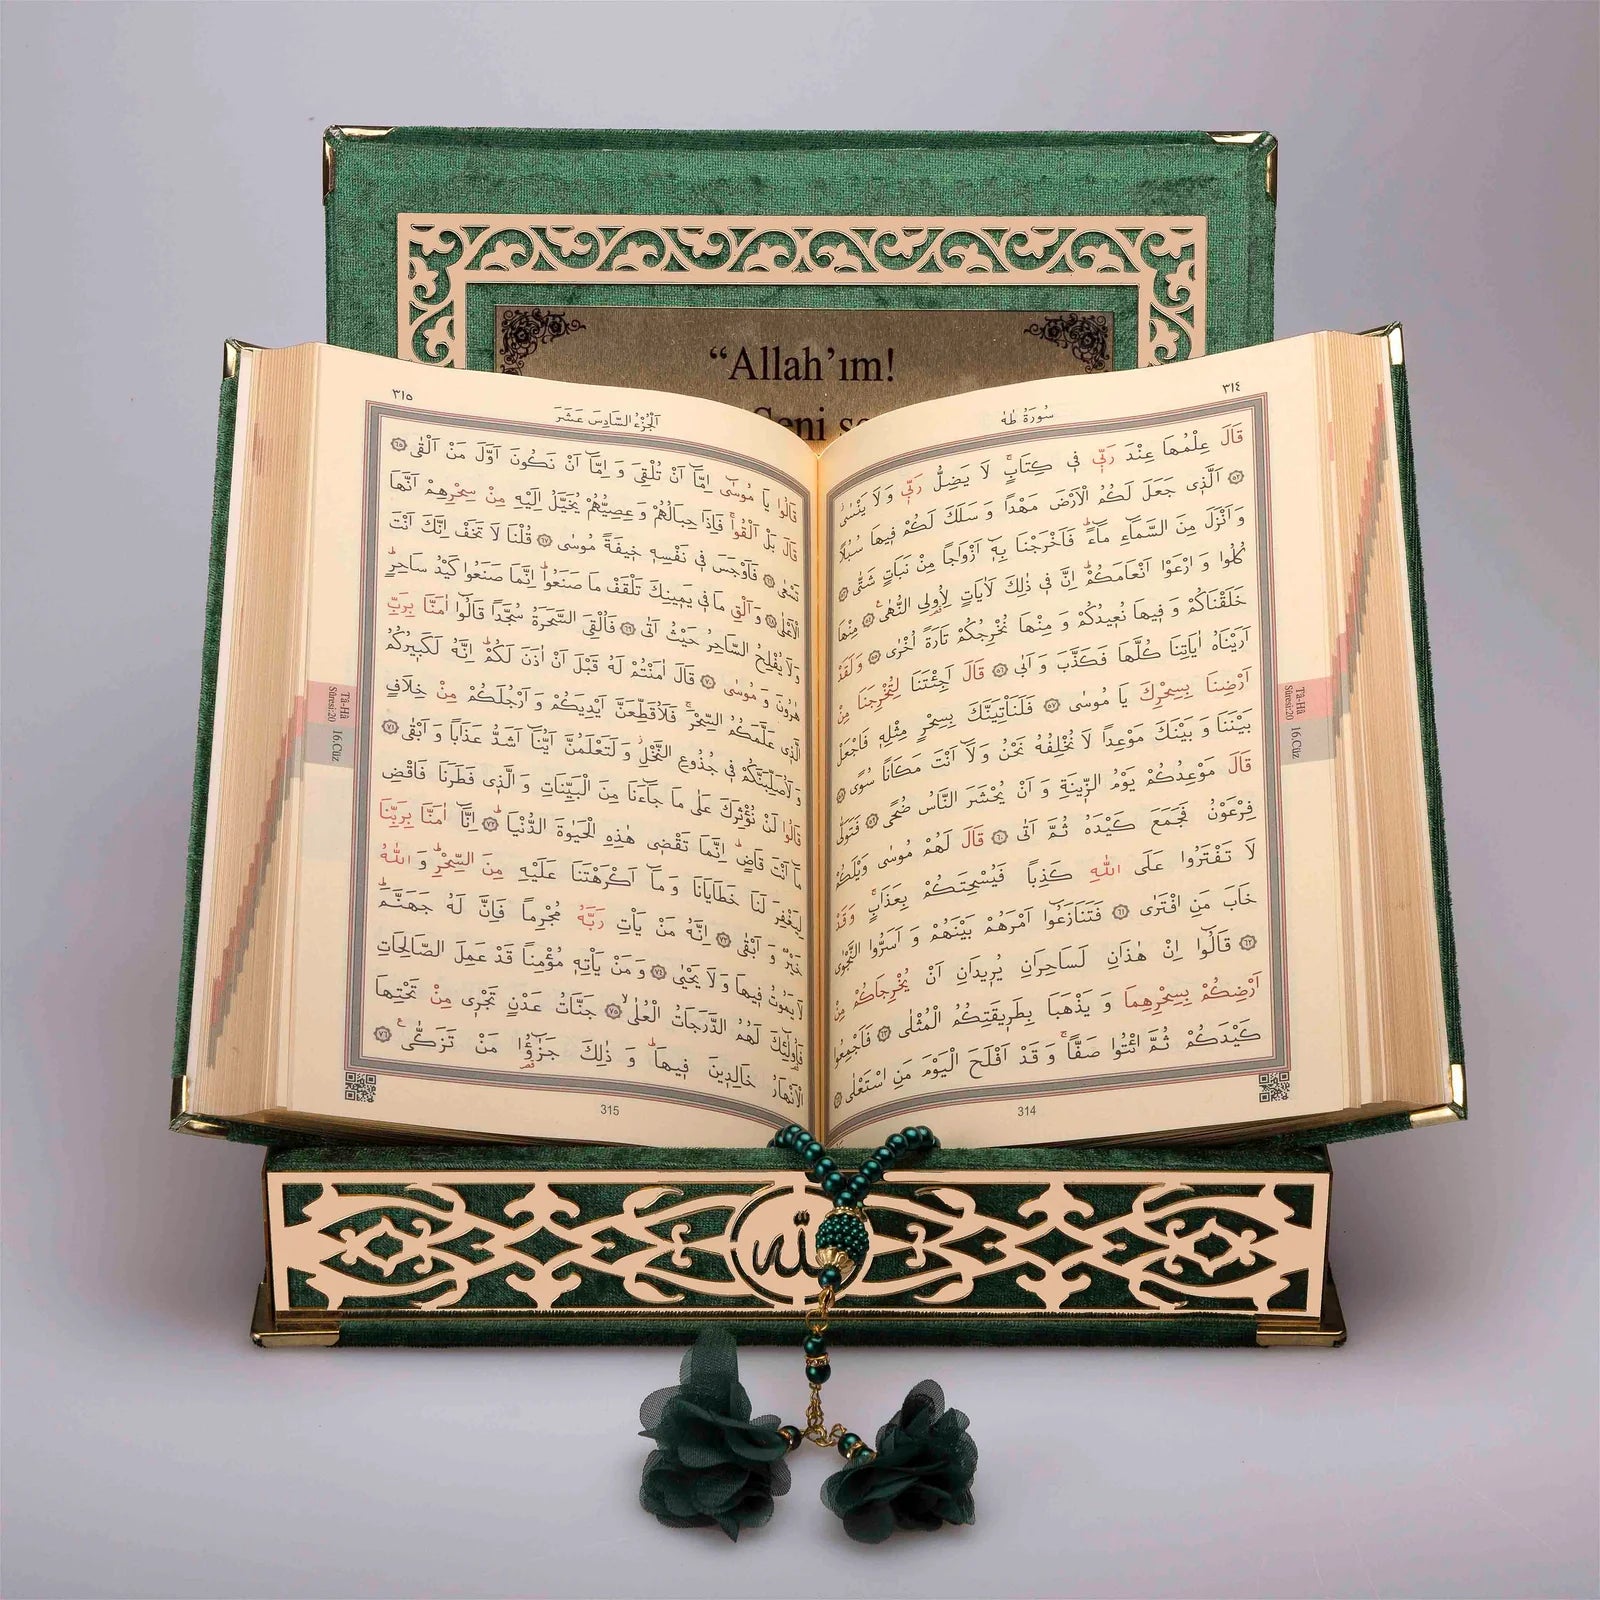 “Allah’ım!
Seni se
٣١٤
سُورَةُ طٰهٰ
قَالَ عِلْمُهَا عِنْدَ رَبّ۪ي ف۪ي كِتَابٍۚ لَا يَضِلُّ رَبّ۪ي وَلَا يَنْسٰىۘ
﴿٥٢﴾ اَلَّذ۪ي جَعَلَ لَكُمُ الْاَرْضَ مَهْداً وَسَلَكَ لَكُمْ ف۪يهَا سُبُلاً
وَاَنْزَلَ مِنَ السَّمَٓاءِ مَٓاءًۜ فَاَخْرَجْنَا بِه۪ٓ اَزْوَاجاً مِنْ نَبَاتٍ شَتّٰى ﴿٥٣﴾
كُلُوا وَارْعَوْا اَنْعَامَكُمْۜ اِنَّ ف۪ي ذٰلِكَ لَاٰيَاتٍ لِاُو۬لِي النُّهٰى۟ ﴿٥٤﴾ مِنْهَا
خَلَقْنَاكُمْ وَف۪يهَا نُع۪يدُكُمْ وَمِنْهَا نُخْرِجُكُمْ تَارَةً اُخْرٰى ﴿٥٥﴾ وَلَقَدْ
اَرَيْنَاهُ اٰيَاتِنَا كُلَّهَا فَكَذَّبَ وَاَبٰى ﴿٥٦﴾ قَالَ اَجِئْتَنَا لِتُخْرِجَنَا مِنْ
اَرْضِنَا بِسِحْرِكَ يَا مُوسٰى ﴿٥٧﴾ فَلَنَأْتِيَنَّكَ بِسِحْرٍ مِثْلِه۪ فَاجْعَلْ
بَيْنَنَا وَبَيْنَكَ مَوْعِداً لَا نُخْلِفُهُ نَحْنُ وَلَٓا اَنْتَ مَكَاناً سُوًى ﴿٥٨﴾
قَالَ مَوْعِدُكُمْ يَوْمُ الزّ۪ينَةِ وَاَنْ يُحْشَرَ النَّاسُ ضُحًى ﴿٥٩﴾ فَتَوَلّٰى
فِرْعَوْنُ فَجَمَعَ كَيْدَهُ ثُمَّ اَتٰى ﴿٦٠﴾ قَالَ لَهُمْ مُوسٰى وَيْلَكُمْ
لَا تَفْتَرُوا عَلَى اللّٰهِ كَذِباً فَيُسْحِتَكُمْ بِعَذَابٍۚ وَقَدْ
خَابَ مَنِ افْتَرٰى ﴿٦١﴾ فَتَنَازَعُٓوا اَمْرَهُمْ بَيْنَهُمْ وَاَسَرُّوا النَّجْوٰى
﴿٦٢﴾ قَالُٓوا اِنْ هٰذَانِ لَسَاحِرَانِ يُر۪يدَانِ اَنْ يُخْرِجَاكُمْ مِنْ
اَرْضِكُمْ بِسِحْرِهِمَا وَيَذْهَبَا بِطَر۪يقَتِكُمُ الْمُثْلٰى ﴿٦٣﴾ فَاَجْمِعُوا
كَيْدَكُمْ ثُمَّ ائْتُوا صَفاًّۚ وَقَدْ اَفْلَحَ الْيَوْمَ مَنِ اسْتَعْلٰى ﴿٦٤﴾
314
Tâ-Hâ
Sûresi:20
16.Cüz
٣١٥
اَلْجُزْءُ السَّادِسَ عَشَرَ
قَالُوا يَا مُوسٰٓى اِمَّٓا اَنْ تُلْقِيَ وَاِمَّٓا اَنْ نَكُونَ اَوَّلَ مَنْ اَلْقٰى ﴿٦٥﴾
قَالَ بَلْ اَلْقُواۚ فَاِذَا حِبَالُهُمْ وَعِصِيُّهُمْ يُخَيَّلُ اِلَيْهِ مِنْ سِحْرِهِمْ اَنَّهَا
تَسْعٰى ﴿٦٦﴾ فَاَوْجَسَ ف۪ي نَفْسِه۪ خ۪يفَةً مُوسٰى ﴿٦٧﴾ قُلْنَا لَا تَخَفْ اِنَّكَ اَنْتَ
الْاَعْلٰى ﴿٦٨﴾ وَاَلْقِ مَا ف۪ي يَم۪ينِكَ تَلْقَفْ مَا صَنَعُواۜ اِنَّمَا صَنَعُوا كَيْدُ سَاحِرٍۜ
وَلَا يُفْلِحُ السَّاحِرُ حَيْثُ اَتٰى ﴿٦٩﴾ فَاُلْقِيَ السَّحَرَةُ سُجَّداً قَالُٓوا اٰمَنَّا بِرَبِّ
هٰرُونَ وَمُوسٰى ﴿٧٠﴾ قَالَ اٰمَنْتُمْ لَهُ قَبْلَ اَنْ اٰذَنَ لَكُمْۜ اِنَّهُ لَكَب۪يرُكُمُ
الَّذ۪ي عَلَّمَكُمُ السِّحْرَۚ فَلَاُقَطِّعَنَّ اَيْدِيَكُمْ وَاَرْجُلَكُمْ مِنْ خِلَافٍ
وَلَاُصَلِّبَنَّكُمْ ف۪ي جُذُوعِ النَّخْلِۘ وَلَتَعْلَمُنَّ اَيُّنَٓا اَشَدُّ عَذَاباً وَاَبْقٰى ﴿٧١﴾
قَالُوا لَنْ نُؤْثِرَكَ عَلٰى مَا جَٓاءَنَا مِنَ الْبَيِّنَاتِ وَالَّذ۪ي فَطَرَنَا فَاقْضِ
مَٓا اَنْتَ قَاضٍۜ اِنَّمَا تَقْض۪ي هٰذِهِ الْحَيٰوةَ الدُّنْيَاۜ ﴿٧٢﴾ اِنَّٓا اٰمَنَّا بِرَبِّنَا
لِيَغْفِرَ لَنَا خَطَايَانَا وَمَٓا اَكْرَهْتَنَا عَلَيْهِ مِنَ السِّحْرِۜ وَاللّٰهُ
خَيْرٌ وَاَبْقٰى ﴿٧٣﴾ اِنَّهُ مَنْ يَأْتِ رَبَّهُ مُجْرِماً فَاِنَّ لَهُ جَهَنَّمَۜ
لَا يَمُوتُ ف۪يهَا وَلَا يَحْيٰى ﴿٧٤﴾ وَمَنْ يَأْتِه۪ مُؤْمِناً قَدْ عَمِلَ الصَّالِحَاتِ
فَاُو۬لٰٓئِكَ لَهُمُ الدَّرَجَاتُ الْعُلٰىۙ ﴿٧٥﴾ جَنَّاتُ عَدْنٍ تَجْر۪ي مِنْ تَحْتِهَا
الْاَنْهَارُ خَالِد۪ينَ ف۪يهَاۜ وَذٰلِكَ جَزٰٓؤُ۬ا مَنْ تَزَكّٰى۟ ﴿٧٦﴾
315
Tâ-Hâ
Sûresi:20
16.Cüz
الله